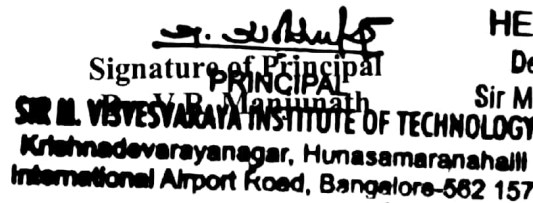 HE
De
Signature of Principal
PRINCIPAL
Sir M
Dr. V.R. Manjunath
SIR M. VISVESVARAYA INSTITUTE OF TECHNOLOGY
Krishnadevarayanagar, Hunasamaranahalli
International Airport Road, Bangalore-562 157